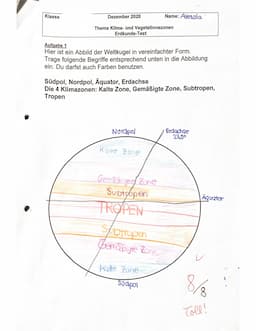 Klasse Dezember 2020 Name: Amalia
Thema Klima- und Vegetationszonen
Erdkunde-Test
Aufgabe 1
Hier ist ein Abbild der Weltkugel in vereinfachter Form.
Trage folgende Begriffe entsprechend unten in die Abbildung
ein. Du darfst auch Farben benutzen.
Südpol, Nordpol, Äquator, Erdachse
Die 4 Klimazonen: Kalte Zone, Gemäßigte Zone, Subtropen,
Tropen
Nordpol Erdachse
23,5°
Kalte Zone
Gemäßigte Zone
Subtropen
Äquator
TROPEN
Subtropen
Gemäßigte Zone
Kalte Zone
Südpol
8/8
Toll!